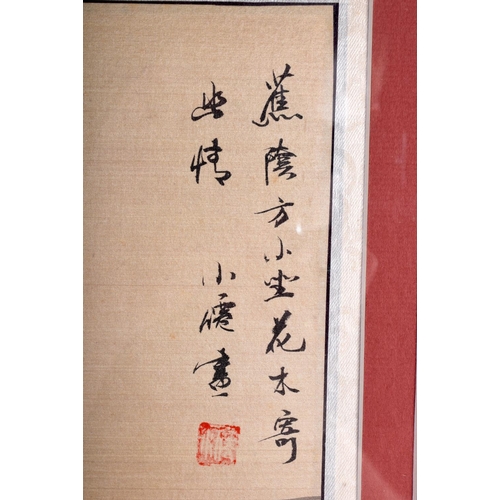 蕉陰方小坐花木寄
幽情
小僊畫